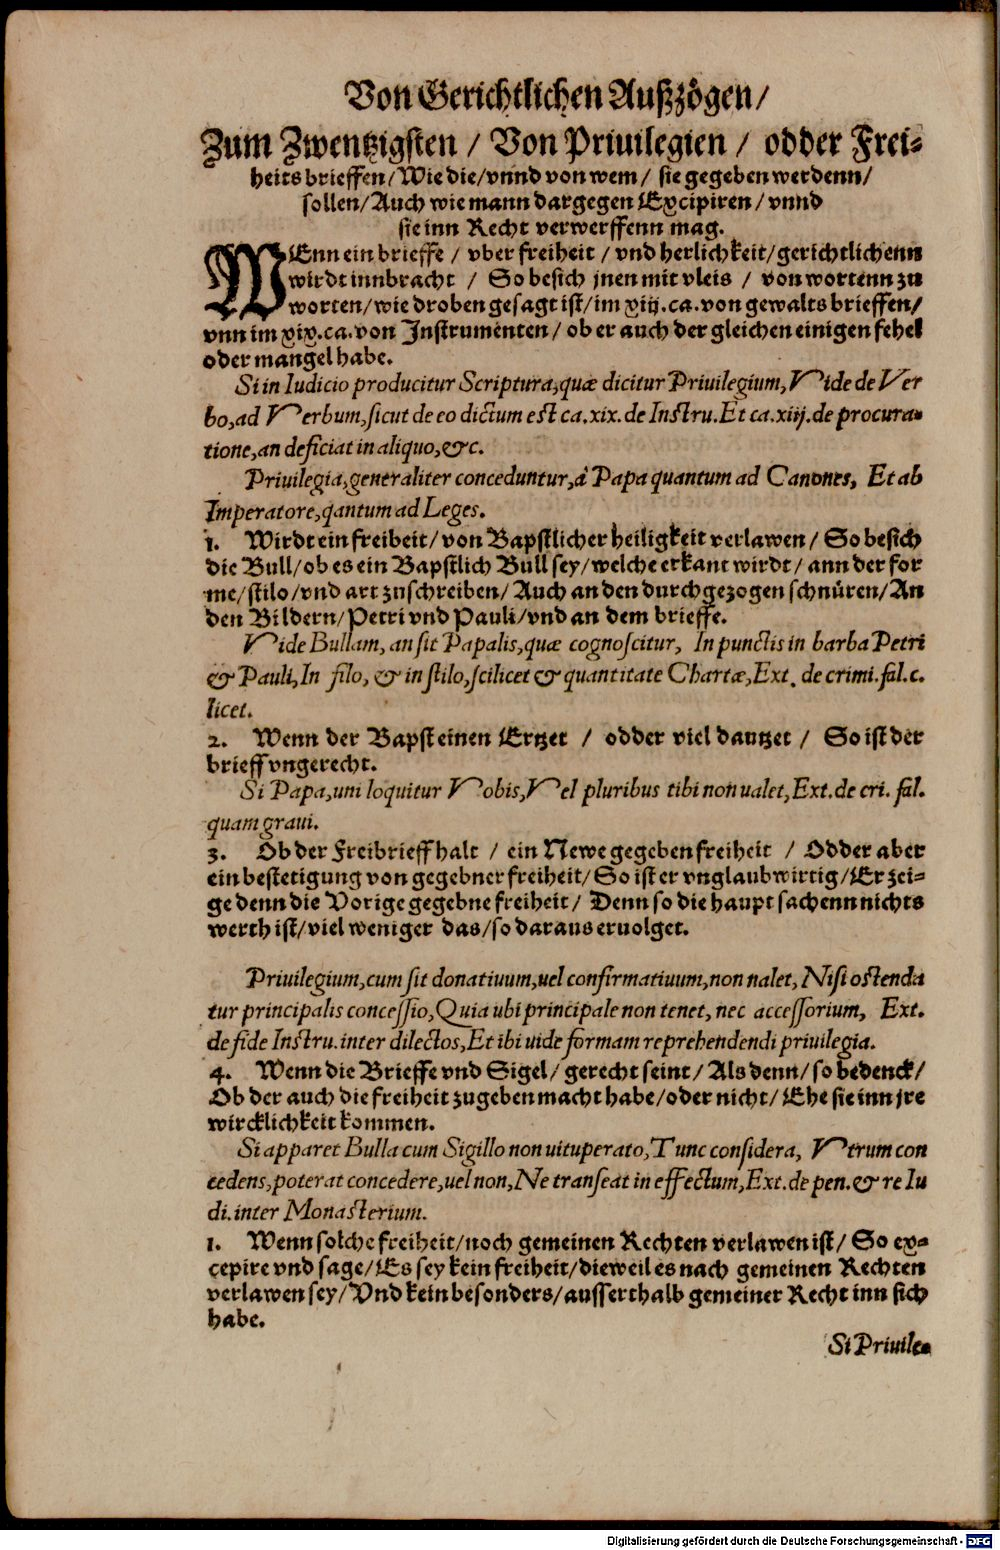 Von Gerichtlichen Außzögen/
Zum Zwentzigsten / Von Priuilegien / odder Frei-
heits brieffen/Wie die/vnnd von wem / sie gegeben werdenn/
sollen/Auch wie mann dargegen Excipiren / vnnd
sie inn Recht verwerffenn mag.
WEnn ein brieffe / vber freiheit / vnd herlichkeit/gerichtlichenn
wirdt innbracht / So besich jnen mit vleis / von wortenn zu
worten/wie droben gesagt ist/im xiij.ca.von gewalts brieffen/
vnn im xix.ca.von Instrumenten/ ob er auch der gleichen einigen fehel
oder mangel habe.
Si in Iudicio producitur Scriptura,quæ dicitur Priuilegium, Vide de Ver
bo,ad Verbum,sicut de eo dictum est ca.xix. de Instru.Et ca.xiij.de procura-
tione,an deficiat in aliquo,&c.
Priuilegia,generaliter conceduntur,à Papa quantum ad Canones, Et ab
Imperatore,qantum ad Leges.
1. Wirdt ein freiheit/von Bapstlicher heiligkeit verlawen/ So besich
die Bull/ob es ein Bapstlich Bull sey/welche erkant wirdt/ ann der for
me/stilo/vnd art zuschreiben/Auch an den durchgezogen schnüren/An
den Bildern/Petri vnd Pauli/vnd an dem brieffe.
Vide Bullam, an sit Papalis,quæ cognoscitur, In punctis in barba Petri
& Pauli,In filo, & in stilo,scilicet & quantitate Chartæ,Ext. de crimi.fal.c.
licet.
2. Wenn der Bapst einen Ertzet / odder viel dautzet / So ist der
brieff vngerecht.
Si Papa,uni loquitur Vobis,Vel pluribus tibi non ualet,Ext.de cri. fal.
quam graui.
3. Ob der Freibrieff halt / ein Newe gegeben freiheit / Odder aber
ein bestetigung von gegebner freiheit/So ist er vnglaubwirtig/Er zei-
ge denn die Vorige gegebne freiheit/ Denn so die haupt sachenn nichts
werth ist/viel weniger das/so daraus eruolget.
Priuilegium,cum sit donatiuum,uel confirmatiuum,non nalet, Nisi ostenda
tur principalis concessio,Quia ubi principale non tenet, nec accessorium, Ext.
de fide Instru.inter dilectos,Et ibi uide formam reprehendendi priuilegia.
4. Wenn die Brieffe vnd Sigel/ gerecht seint/Als denn/so bedenck/
Ob der auch die freiheit zugeben macht habe/oder nicht/Ehe sie inn jre
wircklichkeit kommen.
Si apparet Bulla cum Sigillo non uituperato,Tunc considera, Vtrum con
cedens,poterat concedere,uel non,Ne transeat in effectum,Ext.de pen.& re Iu
di.inter Monasterium.
1. Wenn solche freiheit/noch gemeinen Rechten verlawen ist/ So ex-
cepire vnd sage/Es sey kein freiheit/dieweil es nach gemeinen Rechten
verlawen sey/Vnd kein besonders/ausserthalb gemeiner Recht inn sich
habe.
Si Priuile-
Digitalisierung gefördert durch die Deutsche Forschungsgemeinschaft - DFG